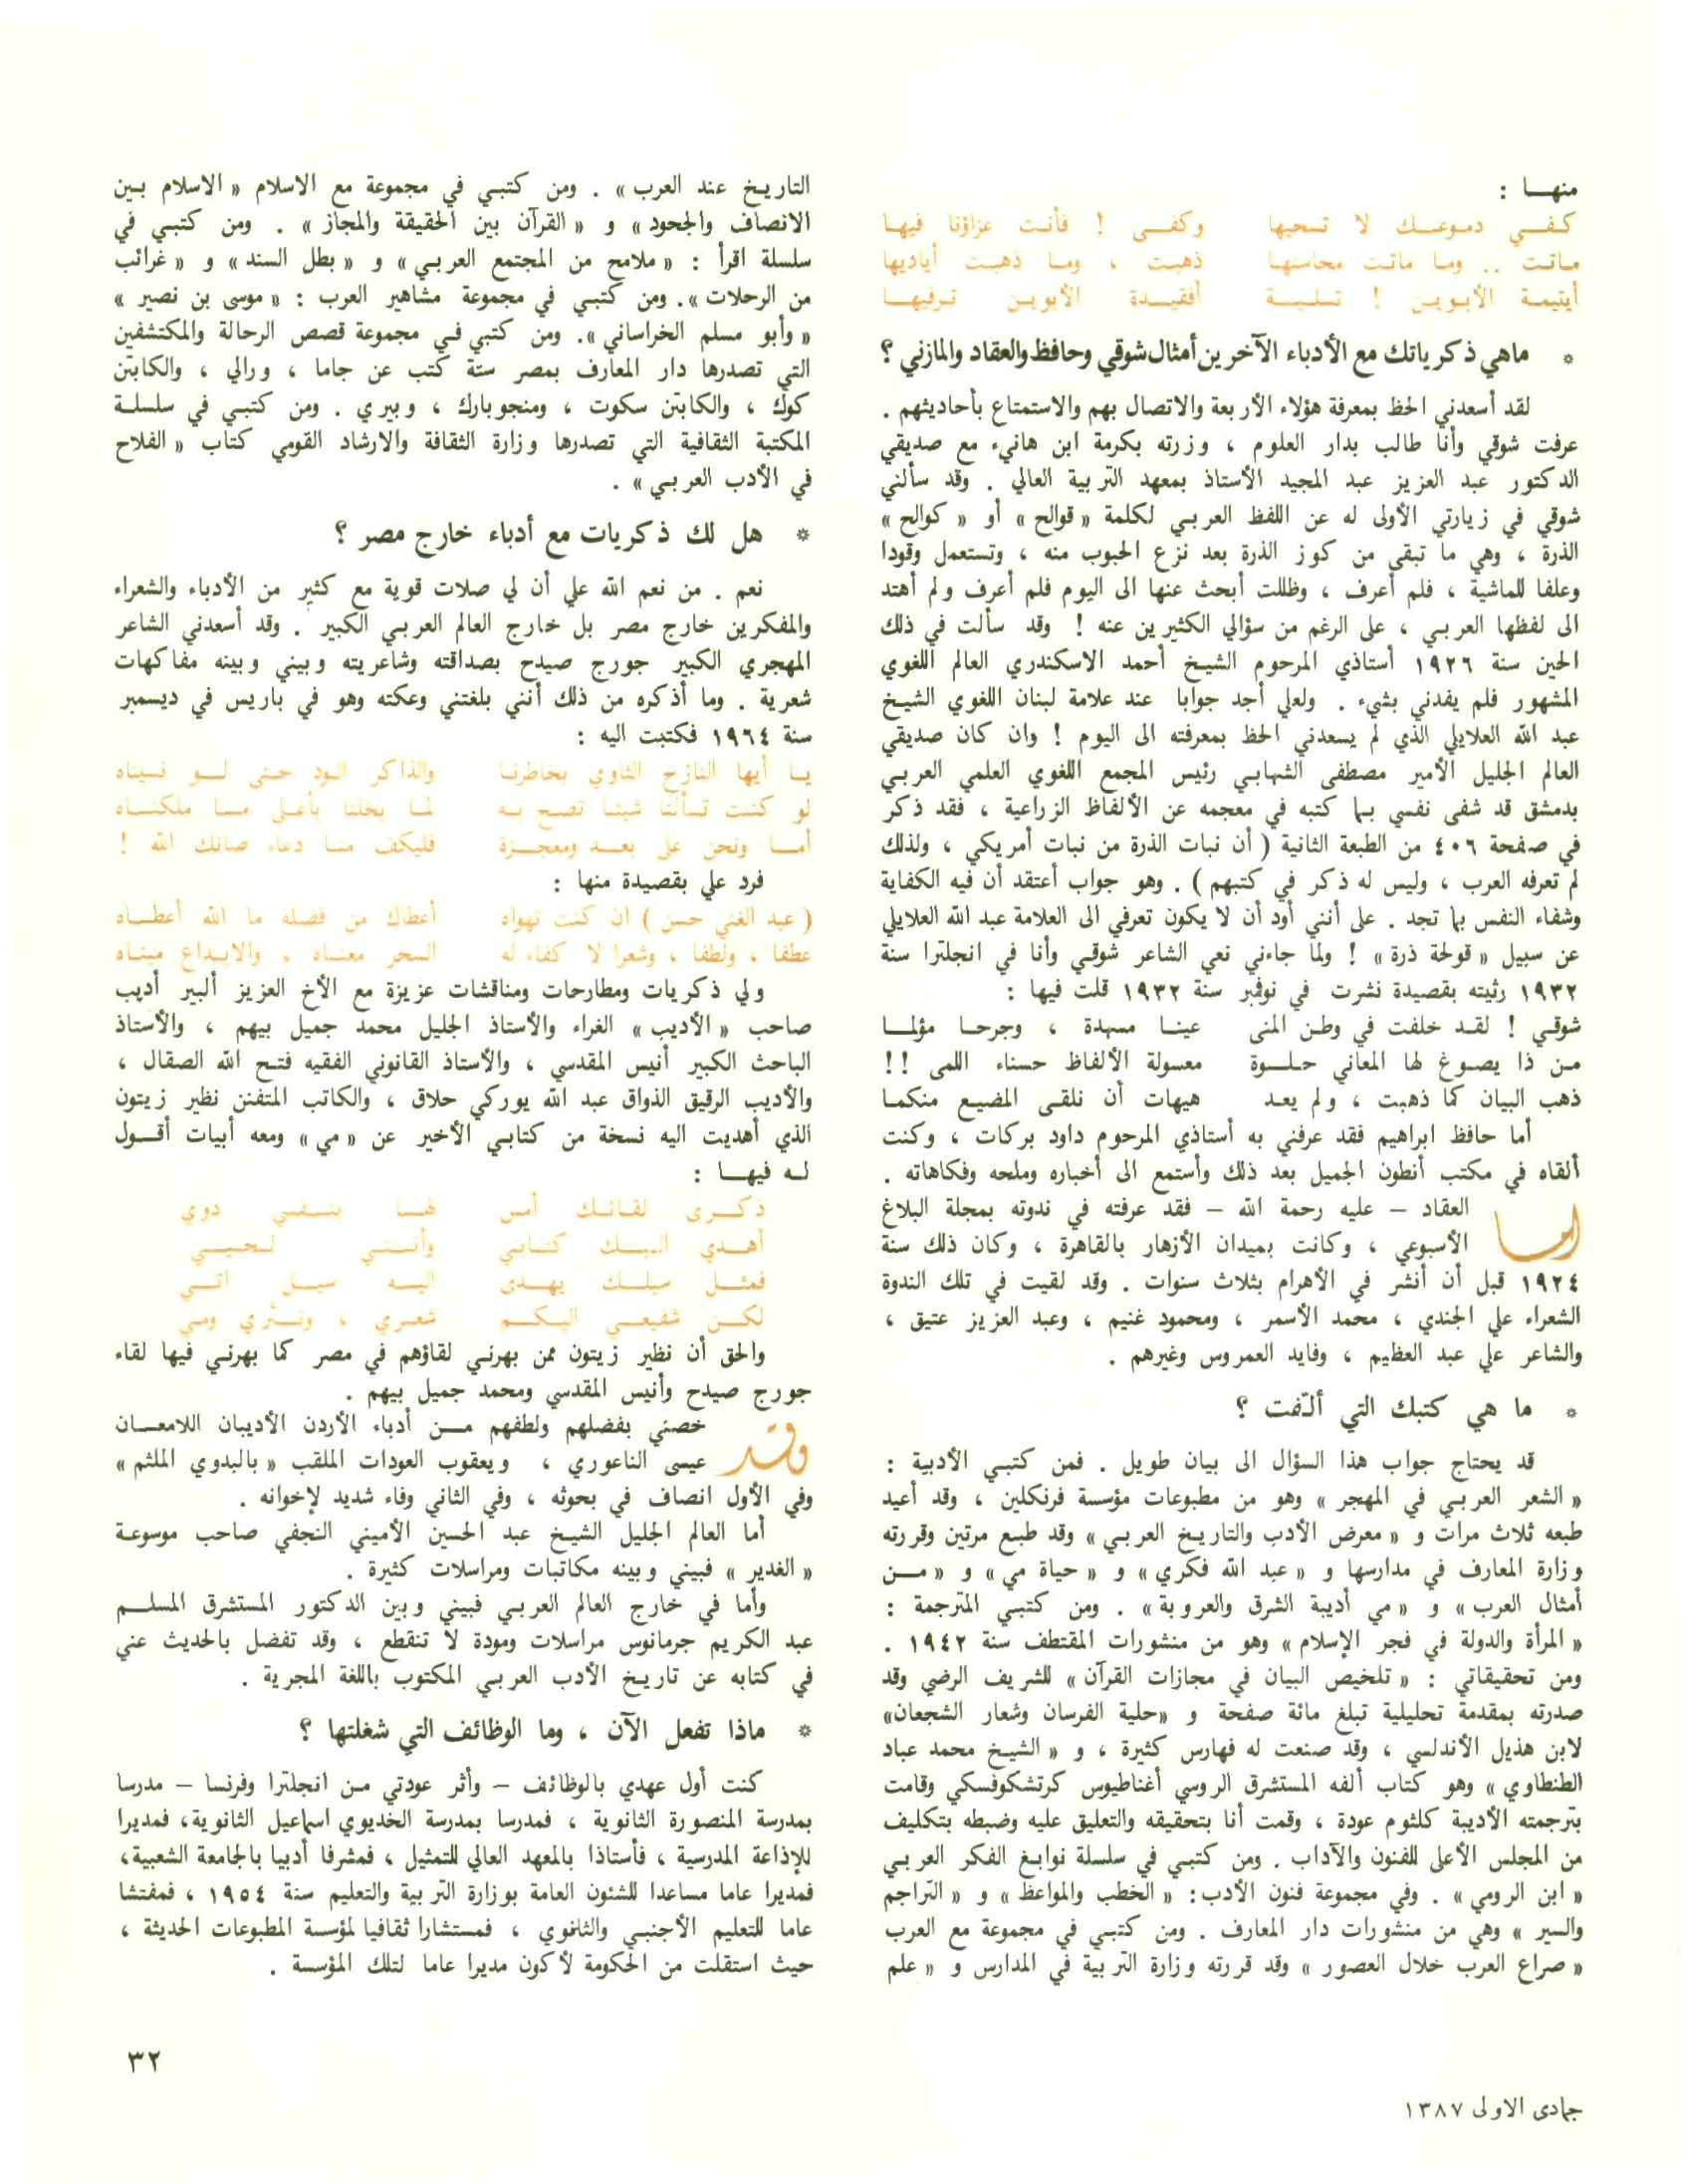 منهـا :
كـفـي دموعـك لا تسحيها وكفـى ! فأنت عزاؤنا فيها
ماتت .. وما ماتت محاسنها ذهبت ، وما ذهبت أياديها
أيتيمـة الأبويـن ! تسليـة أفقيـدة الأبويـن ترفيهـا
* ماهي ذكرياتك مع الأدباء الآخرين أمثال شوقي وحافظ والعقاد والمازني ؟
لقد أسعدني الحظ بمعرفة هؤلاء الأربعة والاتصال بهم والاستمتاع بأحاديثهم .
عرفت شوقي وأنا طالب بدار العلوم ، وزرته بكرمة ابن هانيء مع صديقي
الدكتور عبد العزيز عبد المجيد الأستاذ بمعهد التربية العالي . وقد سألني
شوقي في زيارتي الأولى له عن اللفظ العربي لكلمة « قوالح » أو « كوالح »
الذرة ، وهي ما تبقى من كوز الذرة بعد نزع الحبوب منه ، وتستعمل وقودا
وعلفا للماشية ، فلم أعرف ، وظللت أبحث عنها الى اليوم فلم أعرف ولم أهتد
الى لفظها العربي ، على الرغم من سؤالي الكثيرين عنه ! وقد سألت في ذلك
الحين سنة ١٩٢٦ أستاذي المرحوم الشيخ أحمد الاسكندري العالم اللغوي
المشهور فلم يفدني بشيء . ولعلي أجد جوابا عند علامة لبنان اللغوي الشيخ
عبد الله العلايلي الذي لم يسعدني الحظ بمعرفته الى اليوم ! وان كان صديقي
العالم الجليل الأمير مصطفى الشهابي رئيس المجمع اللغوي العلمي العربي
بدمشق قد شفى نفسي بما كتبه في معجمه عن الألفاظ الزراعية ، فقد ذكر
في صفحة ٤٠٦ من الطبعة الثانية ( أن نبات الذرة من نبات أمريكي ، ولذلك
لم تعرفه العرب ، وليس له ذكر في كتبهم ) . وهو جواب أعتقد أن فيه الكفاية
وشفاء النفس بما تجد . على أنني أود أن لا يكون تعرفي الى العلامة عبد الله العلايلي
عن سبيل « قولحة ذرة » ! ولما جاءني نعي الشاعر شوقي وأنا في انجلترا سنة
١٩٣٢ رثيته بقصيدة نشرت في نوفمبر سنة ١٩٣٢ قلت فيها :
شوقي ! لقـد خلفت في وطـن المنى عينـا مسهدة ، وجرحـا مؤلمـا
مـن ذا يصـوغ لها المعاني حلـوة معسولة الألفاظ حسناء اللمى !!
ذهب البيان كما ذهبت ، ولم يعـد هيهات أن نلقـى المضيـع منكمـا
أما حافظ ابراهيم فقد عرفني به أستاذي المرحوم داود بركات ، وكنت
ألقاه في مكتب أنطون الجميل بعد ذلك وأستمع الى أخباره وملحه وفكاهاته .
أما العقاد – عليه رحمة الله – فقد عرفته في ندوته بمجلة البلاغ
الأسبوعي ، وكانت بميدان الأزهار بالقاهرة ، وكان ذلك سنة
١٩٢٤ قبل أن أنشر في الأهرام بثلاث سنوات . وقد لقيت في تلك الندوة
الشعراء علي الجندي ، محمد الأسمر ، ومحمود غنيم ، وعبد العزيز عتيق ،
والشاعر علي عبد العظيم ، وفايد العمروس وغيرهم .
* ما هي كتبك التي ألّفت ؟
قد يحتاج جواب هذا السؤال الى بيان طويل . فمن كتبي الأدبية :
« الشعر العربي في المهجر » وهو من مطبوعات مؤسسة فرنكلين ، وقد أعيد
طبعه ثلاث مرات و « معرض الأدب والتاريخ العربي » وقد طبع مرتين وقررته
وزارة المعارف في مدارسها و « عبد الله فكري » و « حياة مي » و « مـن
أمثال العرب » و « مي أديبة الشرق والعروبة » . ومن كتبي المترجمة :
« المرأة والدولة في فجر الإسلام » وهو من منشورات المقتطف سنة ١٩٤٢ .
ومن تحقيقاتي : « تلخيص البيان في مجازات القرآن » للشريف الرضي وقد
صدرته بمقدمة تحليلية تبلغ مائة صفحة و «حلية الفرسان وشعار الشجعان»
لابن هذيل الأندلسي ، وقد صنعت له فهارس كثيرة ، و « الشيخ محمد عياد
الطنطاوي » وهو كتاب ألفه المستشرق الروسي أغناطيوس كرتشكوفسكي وقامت
بترجمته الأديبة كلثوم عودة ، وقمت أنا بتحقيقه والتعليق عليه وضبطه بتكليف
من المجلس الأعلى للفنون والآداب . ومن كتبي في سلسلة نوابغ الفكر العربي
« ابن الرومي » . وفي مجموعة فنون الأدب: « الخطب والمواعظ » و « التراجم
والسير » وهي من منشورات دار المعارف . ومن كتبي في مجموعة مع العرب
« صراع العرب خلال العصور » وقد قررته وزارة التربية في المدارس و « علم
التاريخ عند العرب » . ومن كتبي في مجموعة مع الاسلام « الاسلام بين
الانصاف والجحود » و « القرآن بين الحقيقة والمجاز » . ومن كتبي في
سلسلة اقرأ : « ملامح من المجتمع العربي » و « بطل السند » و « غرائب
من الرحلات ». ومن كتبي في مجموعة مشاهير العرب : « موسى بن نصير »
« وأبو مسلم الخراساني ». ومن كتبي في مجموعة قصص الرحالة والمكتشفين
التي تصدرها دار المعارف بمصر ستة كتب عن جاما ، ورالي ، والكابتن
كوك ، والكابتن سكوت ، ومنجوبارك ، وبيري . ومن كتبي في سلسلـة
المكتبة الثقافية التي تصدرها وزارة الثقافة والارشاد القومي كتاب « الفلاح
في الأدب العربي » .
* هل لك ذكريات مع أدباء خارج مصر ؟
نعم . من نعم الله علي أن لي صلات قوية مع كثير من الأدباء والشعراء
والمفكرين خارج مصر بل خارج العالم العربي الكبير . وقد أسعدني الشاعر
المهجري الكبير جورج صيدح بصداقته وشاعريته وبيني وبينه مفاكهات
شعرية . وما أذكره من ذلك أنني بلغتني وعكته وهو في باريس في ديسمبر
سنة ١٩٦٤ فكتبت اليه :
يـا أيها النازح الثاوي بخاطرنـا والذاكر الـود حتى لـو نسيناه
لو كنت تسألنا شيئـا تصح بـه لمـا بخلنا بأغلى مـا ملكنـاه
أمـا ونحن على بعـد ومعجـزة فليكف منـا دعاء صانك الله !
فرد علي بقصيدة منها :
( عبد الغني حسن ) ان كنت تهواه أعطاك من فضله ما الله أعطـاه
عطفا ، ولطفا ، وشعرا لا كفاء له السحر معنـاه ، والابـداع مبنـاه
ولي ذكريات ومطارحات ومناقشات عزيزة مع الأخ العزيز ألبير أديب
صاحب « الأديب » الغراء والأستاذ الجليل محمد جميل بيهم ، والأستاذ
الباحث الكبير أنيس المقدسي ، والأستاذ القانوني الفقيه فتـح الله الصقال ،
والأديب الرقيق الذواق عبد الله يوركي حلاق ، والكاتب المتفنن نظير زيتون
الذي أهديت اليه نسخة من كتابي الأخير عن « مي » ومعه أبيات أقـول
لـه فيهـا :
ذكـرى لقائـك أمس لهـا بنـفسي دوي
أهـدي اليـك كتـابي وأنـني لـحيـي
فمثـل سيلـك يهـدى اليـه سيـل اتـي
لكـن شفيعـي اليكـم شعـري ، ونـثري ومي
والحق أن نظير زيتون ممن بهرني لقاؤهم في مصر كما بهرني فيها لقاء
جورج صيدح وأنيس المقدسي ومحمد جميل بيهم .
وقد خصني بفضلهم ولطفهم مـن أدباء الأردن الأديبان اللامعـان
عيسى الناعوري ، ويعقوب العودات الملقب « بالبدوي الملثم »
وفي الأول انصاف في بحوثه ، وفي الثاني وفاء شديد لإخوانه .
أما العالم الجليل الشيخ عبد الحسين الأميني النجفي صاحب موسوعـة
« الغدير » فبيني وبينه مكاتبات ومراسلات كثيرة .
وأما في خارج العالم العربي فبيني وبين الدكتور المستشرق المسلـم
عبد الكريم جرمانوس مراسلات ومودة لا تنقطع ، وقد تفضل بالحديث عني
في كتابه عن تاريخ الأدب العربي المكتوب باللغة المجرية .
* ماذا تفعل الآن ، وما الوظائف التي شغلتها ؟
كنت أول عهدي بالوظائف – وأثر عودتي مـن انجلترا وفرنسا – مدرسا
بمدرسة المنصورة الثانوية ، فمدرسا بمدرسة الخديوي اسماعيل الثانوية، فمديرا
للإذاعة المدرسية ، فأستاذا بالمعهد العالي للتمثيل ، فمشرفا أدبيا بالجامعة الشعبية،
فمديرا عاما مساعدا للشئون العامة بوزارة التربية والتعليم سنة ١٩٥٤ ، فمفتشا
عاما للتعليم الأجنبي والثانوي ، فمستشارا ثقافيا لمؤسسة المطبوعات الحديثة ،
حيث استقلت من الحكومة لأكون مديرا عاما لتلك المؤسسة .
٣٢
جمادى الاولى ١٣٨٧